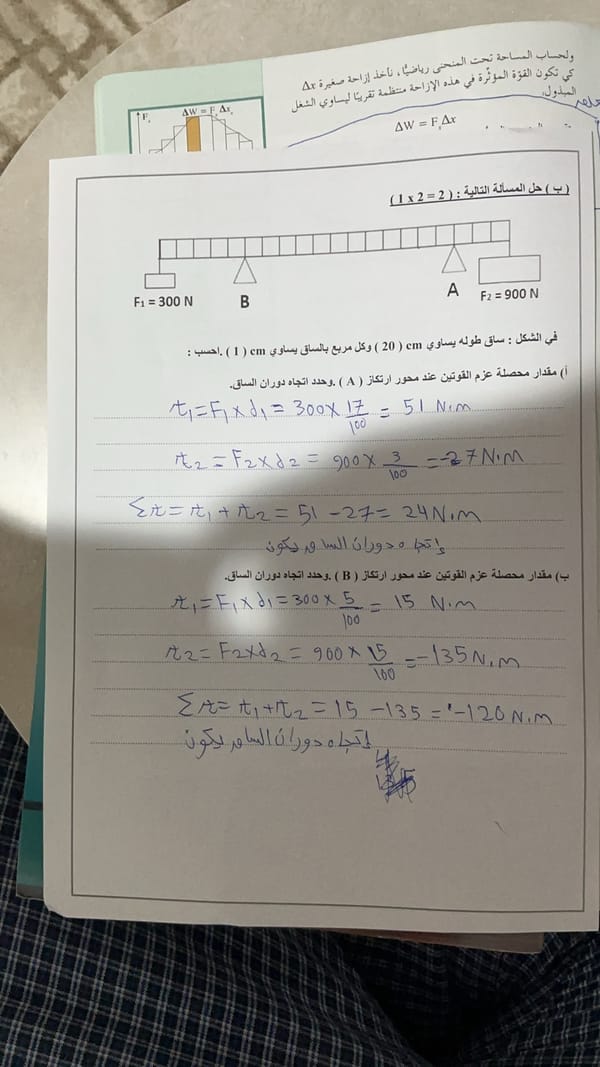 ولحساب المساحة تحت المنحنى رياضيًّا، نأخذ إزاحة صغيرة Δx
كي تكون القوّة المؤثّرة في هذه الإزاحة منتظمة تقريبًا ليساوي الشغل
المبذول.
ΔW = FₓΔx
Fₓ
ΔW = Fₓ Δxₓ
( ب ) حل المسألة التالية : ( 2 = 2 x 1 )
F1 = 300 N
B
A
F2 = 900 N
في الشكل : ساق طوله يساوي cm ( 20 ) وكل مربع بالساق يساوي cm ( 1 ) .احسب :
أ) مقدار محصلة عزم القوتين عند محور ارتكاز ( A ) .وحدد اتجاه دوران الساق.
τ1 = F1 x d1 = 300 x 17/100 = 51 N.m
τ2 = F2 x d2 = 900 x 3/100 = -27 N.m
Στ = τ1 + τ2 = 51 - 27 = 24 N.m
إتجاه دوران الساق يكون
ب) مقدار محصلة عزم القوتين عند محور ارتكاز ( B ) .وحدد اتجاه دوران الساق.
τ1 = F1 x d1 = 300 x 5/100 = 15 N.m
τ2 = F2 x d2 = 900 x 15/100 = -135 N.m
Στ = τ1 + τ2 = 15 - 135 = -120 N.m
إتجاه دوران الساق يكون